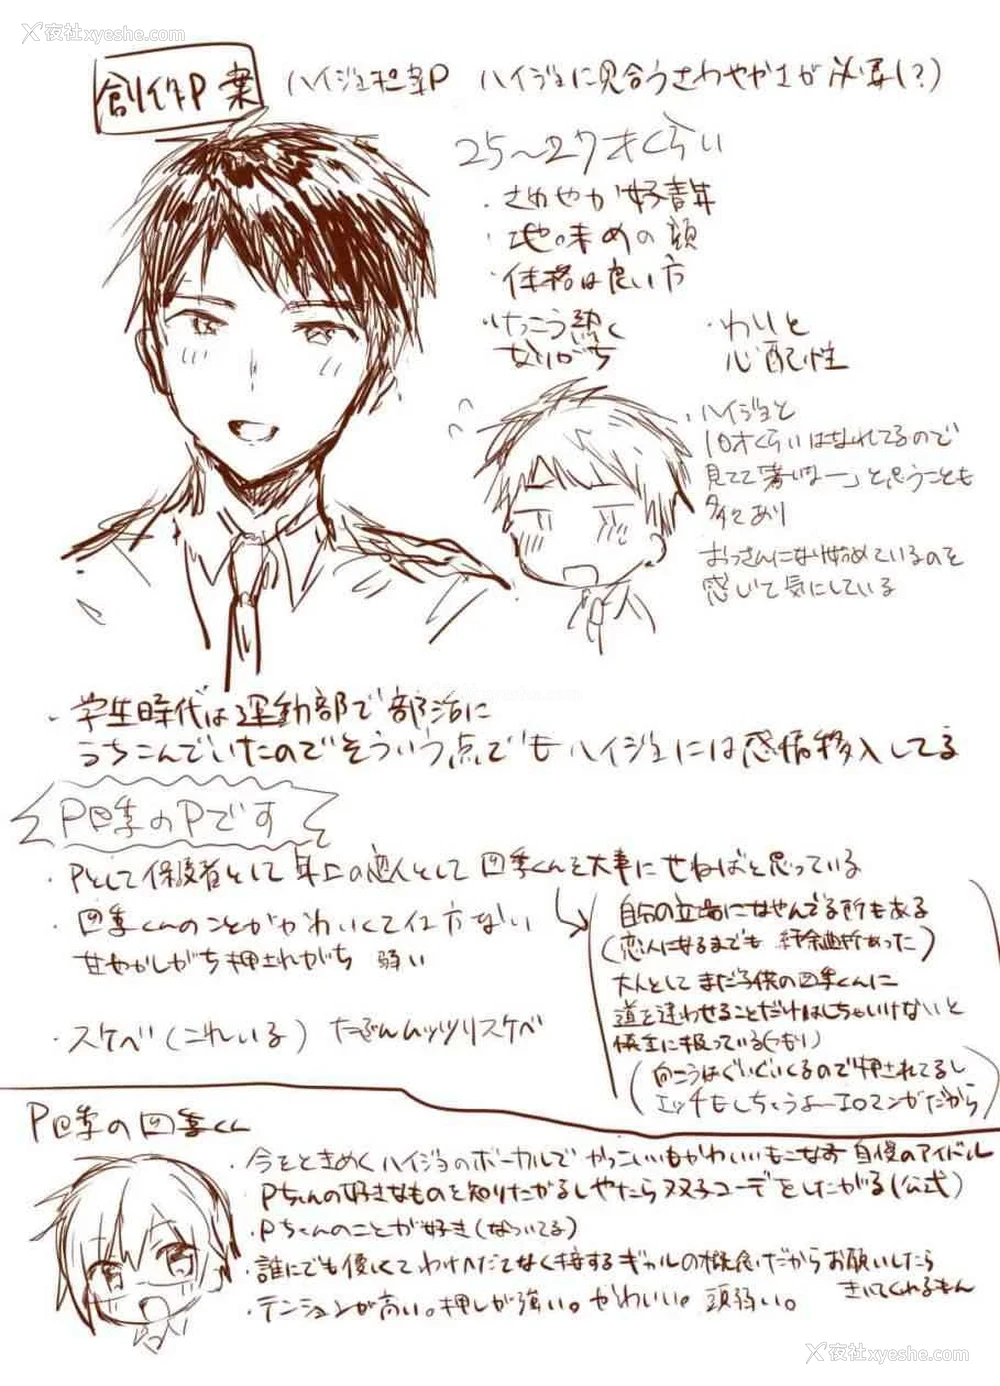 夜社xyeshe.com
夜社xyeshe.com
創作P案
ハイジョ担当P ハイジョに見合うさわやかさが必要(?)
25〜27才くらい
・さわやか好青年
・地味めの顔
・体格は良い方
・けっこう熱く
なりがち
・わりと
心配性
・ハイジョと
10才くらいはなれてるので
見てて「若いなー」と思うことも
多々あり
おっさんになり始めているのを
感じて気にしている
・学生時代は運動部で部活に
うちこんでいたのでそういう点でもハイジョには感情移入してる
P四季のPです
・Pとして保護者として年上の恋人として四季くんを大事にせねばと思っている
・四季くんのことがかわいくて仕方ない
甘やかしがち押されがち 弱い
・スケベ(これいる) たぶんムッツリスケベ
自分の立場になやんでる所もある
(恋人になるまでも紆余曲折あった)
大人としてまだ子供の四季くんに
道を違わせることだけはしちゃいけないと
慎重に扱っている(つもり)
(向こうはぐいぐいくるので押されてるし
エッチもしちゃうよーエロマンガだから)
P四季の四季くん
・今をときめくハイジョのボーカルでかっこいいもかわいいもこなす自慢のアイドル
Pちゃんの好きなものを知りたがるしやたら双子コーデをしたがる(公式)
・Pちゃんのことが好き(なついてる)
・誰にでも優しくてわけへだてなく接するギャルの概念だからお願いしたら
きいてくれるもん
・テンションが高い。押しが強い。かわいい。頭弱い。
夜社xyeshe.com